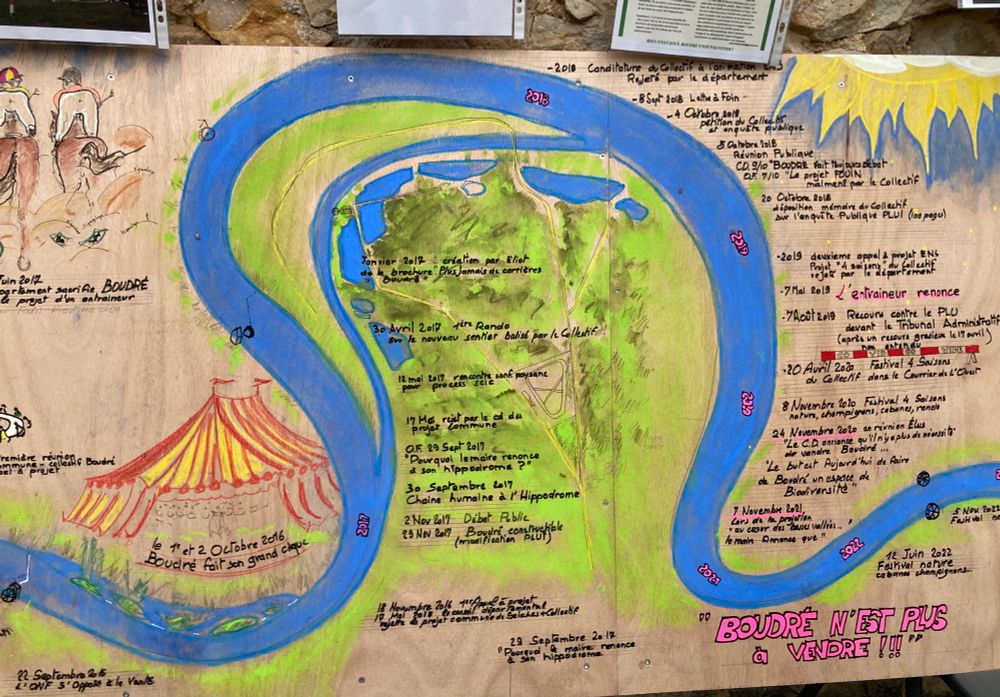 Juin 2017
sacrifie BOUDRÉ
le projet d'un entraineur
Première réunion
Collectif Boudré
le 1er et 2 Octobre 2016
Boudré fait son grand cirque
22 Septembre 2016
L'ONF S'Oppose à la Vente
2017
2018
2019
2020
2021
2022
Janvier 2017 création par Eliot
de la brochure "Plus Jamais de carrières
Boudré"
30 Avril 2017 1ère Rando
sur le nouveau sentier balisé par le Collectif
12 mai 2017 rencontre conf paysanne
pour process scic
17 Mai rejet par le cd du
projet commune
O.F. 29 Sept 2017
"Pourquoi le maire renonce
à son hippodrome ?"
30 Septembre 2017
Chaine humaine à l'Hippodrome
2 Nov 2017 Débat Public
23 Nov 2017 Boudré constructible
(modification PLUT)
18 Novembre 2016 1er Appel à projet
17 Mai 2018 le conseil départemental
rejette le projet commun de Seiches + Collectif
29 Septembre 2017
"Pourquoi le maire renonce
à son hippodrome
-2018 Candidature du Collectif à l'animation ENS
Rejeté par le département
-8 Sept 2018 Lettre à Foin
-4 Octobre 2018
pétition du Collectif
et enquête publique
8 Octobre 2018
Réunion Publique
C.D. 9/10 "BOUDRÉ fait toujours débat
O.F. 7/10 "Le projet FOUIN
malmené par le Collectif
20 Octobre 2018
déposition mémoire du Collectif
sur l'enquête Publique PLUI (100 pages)
-2019 deuxième appel à projet ENS
Projet "4 saisons" du Collectif
rejeté par le département
-7 Mai 2019 L'entraineur renonce
-7 Août 2019 Recours contre le PLU
devant le Tribunal Administratif
(après un recours gracieux le 17 avril)
non entendu
-20 Avril 2020 Festival 4 Saisons
du Collectif dans le Courrier de l'Ouest
8 Novembre 2020 Festival 4 Saisons
nature, champignons, cabanes, rando
24 Novembre 2020 en réunion Élus
"Le C.D. annonce qu'il n'y a plus de nécessité
de vendre Boudré ...
"Le but est Aujourd'hui de faire
de Boudré un espace de
Biodiversité"
7 Novembre 2021
Lors de la projection
"au cœur des Basses Vallées.."
le maire Annonce que "
5 Nov 2022
Festival
12 Juin 2022
Festival nature
cabanes champignons...
"BOUDRÉ N'EST PLUS
à VENDRE !!!"